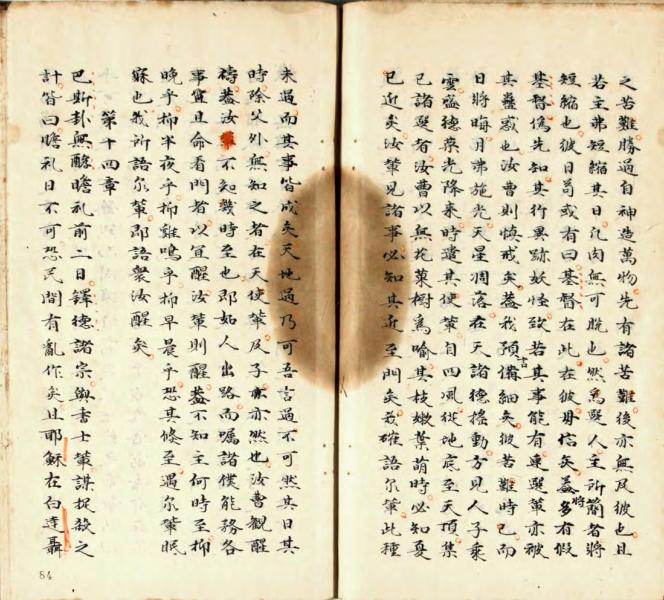 之苦難勝過自神造萬物先有諸苦難後亦無及彼也且
若主弗短縮其日凡肉無可脫也然為賢人主所蕳者將
短縮也彼日苟或有曰基督在此在彼毋信矣蓋將多有假
基督偽先知其行異跡妖怪致若其事能有連選輩亦被
其蠱惑也汝曹則慎戒矣蓋我預言備細矣彼苦難時已而
日將晦月弗施光天星凋落在天諸德搖動方見人子乘
雲盛德榮光降來時遣其使輩自四風從地底至天頂集
己諸選者汝曹以無花菓樹為喻其枝嫩葉萌時必知夏
已近矣汝輩見諸事必知其近至門矣我確語尔輩此種
未過而其事皆成矣天地過乃可吾言過不可然其日其
時除父外無知之者在天使輩及子亦亦然也汝曹觀醒
禱蓋汝輩不知幾時至也即如人出路而囑諸僕能務各
事宜且命看門者以宜醒汝輩則醒蓋不知主何時至抑
晚乎抑半夜乎抑雞鳴乎抑早晨乎恐其倏至遇尔輩眠
寐也我所語尔輩即語衆汝醒矣
第十四章
巴斯卦無酵瞻礼前二日鐸德諸宗與書士輩謀捉殺之
計皆曰瞻礼日不可恐民間有亂作矣且耶穌在白逹聶
84